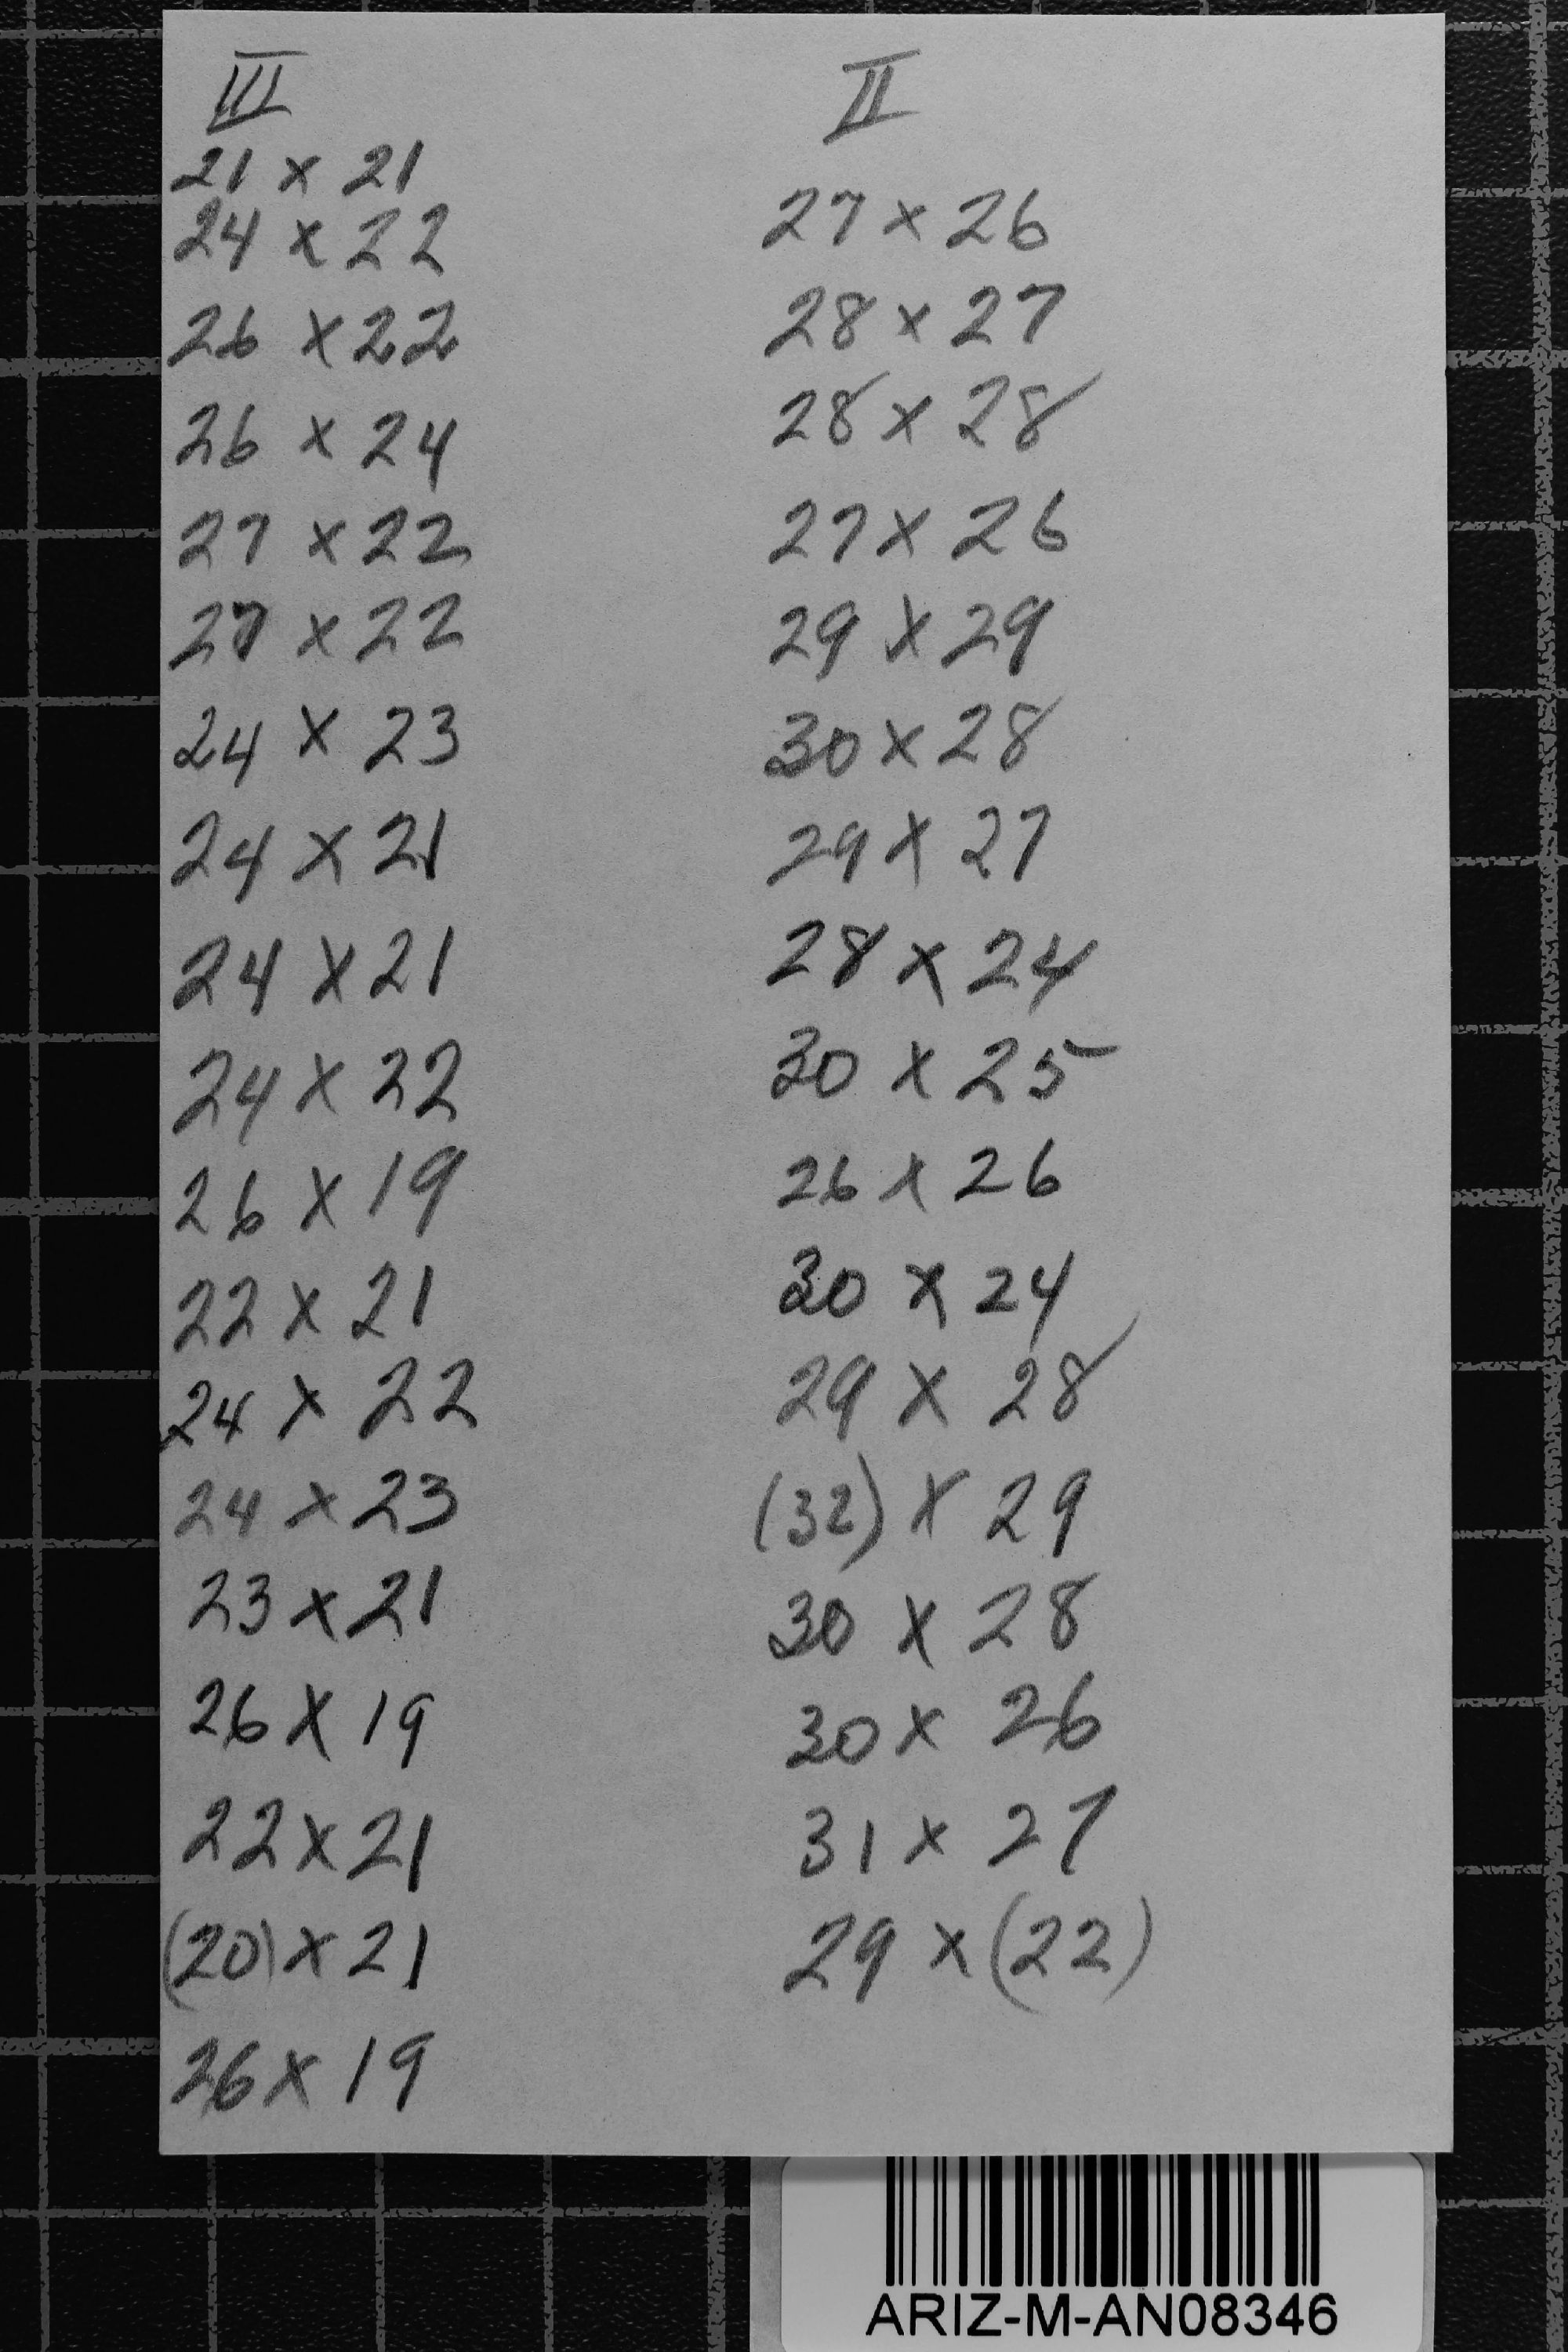 III
21 x 21
24 x 22
26 x 22
26 x 24
27 x 22
27 x 22
24 x 23
24 x 21
24 x 21
24 x 22
26 x 19
22 x 21
24 x 22
24 x 23
23 x 21
26 x 19
22 x 21
(20) x 21
26 x 19
II
27 x 26
28 x 27
28 x 28
27 x 26
29 x 29
30 x 28
29 x 27
28 x 24
30 x 25
26 x 26
30 x 24
29 x 28
(32) x 29
30 x 28
30 x 26
31 x 27
29 x (22)
ARIZ-M-AN08346